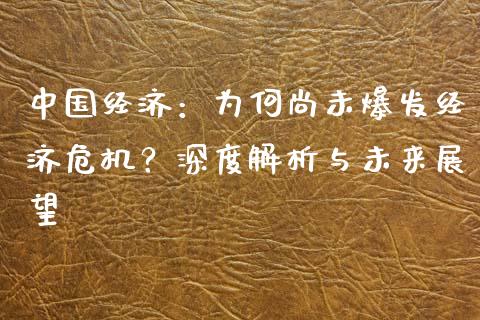 中国经济：为何尚未爆发经
济危机？深度解析与未来展
望